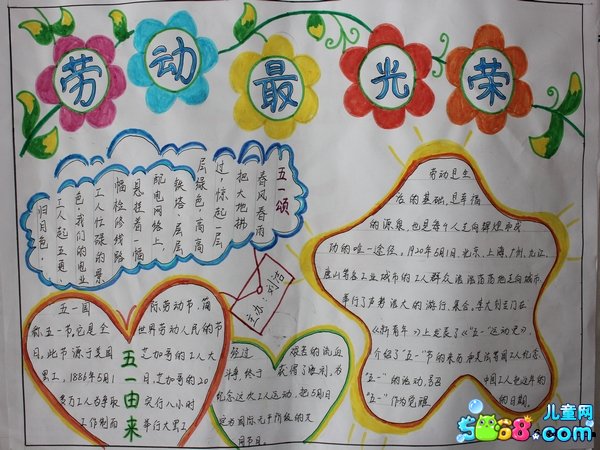 劳动最光荣
五一颂
春风春雨
把大地拂
过，惊起一层
层绿色，高高
铁塔，层层
配电网络上，
悬挂着一幅
幅检修线路
工人忙碌的景
色，我们的电业
工人起五更，
归月色，
劳动是生
存的基础，是幸福
的源泉，也是每个人走向辉煌成
功的唯一途径。1920年5月1日，北京、上海、广州、九江、
唐山等各工业城市的工人群众浩浩荡荡地走向城市
举行了声势浩大的游行、集会。李大钊专门在
《新青年》上发表了《"五一"运动史》，
介绍了"五一"节的来历和美法等国工人纪念
"五一"的活动，号召中国工人把这年的
"五一"作为觉醒的日期。
五一国际劳动节，简
称五一节，它是全世界劳动人民的节
日，此节源于美国芝加哥的工人大
罢工，1886年5月1日，芝加哥的20
多万工人为争取实行八小时
工作制而举行大罢工
五一由来
经过艰苦的流血
斗争，终于获得了胜利，为
纪念这次工人运动，把5月1日
定为国际无产阶级的
同节日。
儿童网
5068.com